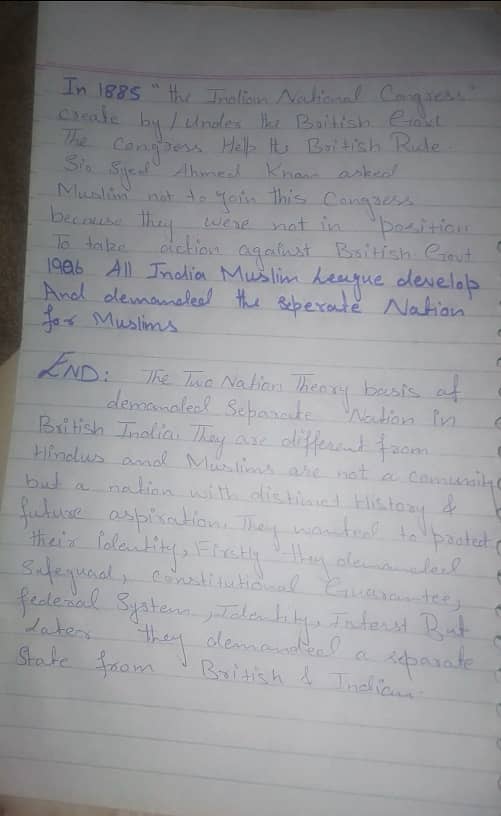 In 1885 "the Indian National Congress"
create by / Under the British Govt
The Congress Help the British Rule.
Sir Syed Ahmed Khan asked
Muslim not to Join this Congress
because they were not in position
To take action against British Govt
1906 All India Muslim League develop
And demanded the seperate Nation
for Muslims
END: The Two Nation Theory basis of
demanded Separate Nation in
British India. They are different from
Hindus and Muslims are not a community
but a nation with distinct History &
future aspiration. They wanted to protect
their identity, Firstly they demanded
Safeguad, Constitutional Guarantee,
federal System, Identity, Interst But
Later they demanded a separate
State from British & Indian.